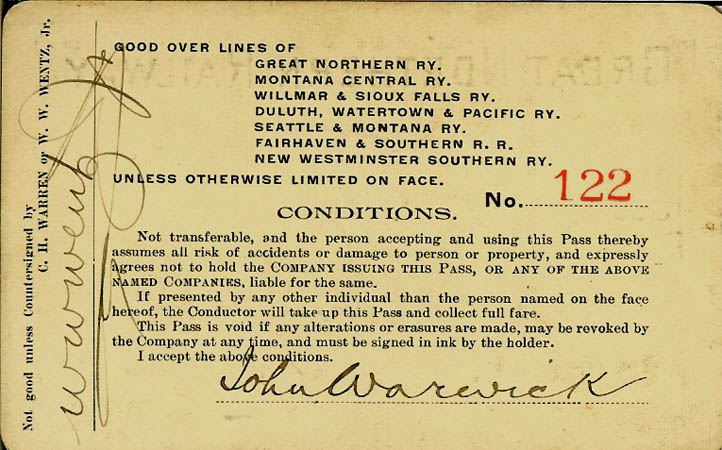 GOOD OVER LINES OF
GREAT NORTHERN RY.
MONTANA CENTRAL RY.
WILLMAR & SIOUX FALLS RY.
DULUTH, WATERTOWN & PACIFIC RY.
SEATTLE & MONTANA RY.
FAIRHAVEN & SOUTHERN R. R.
NEW WESTMINSTER SOUTHERN RY.
UNLESS OTHERWISE LIMITED ON FACE.
No. 122
CONDITIONS.
Not transferable, and the person accepting and using this Pass thereby
assumes all risk of accidents or damage to person or property, and expressly
agrees not to hold the COMPANY ISSUING THIS PASS, OR ANY OF THE ABOVE
NAMED COMPANIES, liable for the same.
If presented by any other individual than the person named on the face
hereof, the Conductor will take up this Pass and collect full fare.
This Pass is void if any alterations or erasures are made, may be revoked by
the Company at any time, and must be signed in ink by the holder.
I accept the above conditions.
John Warwick
Not good unless Countersigned by
C. H. WARREN or W. W. WENTZ, Jr.
W W Wentz Jr